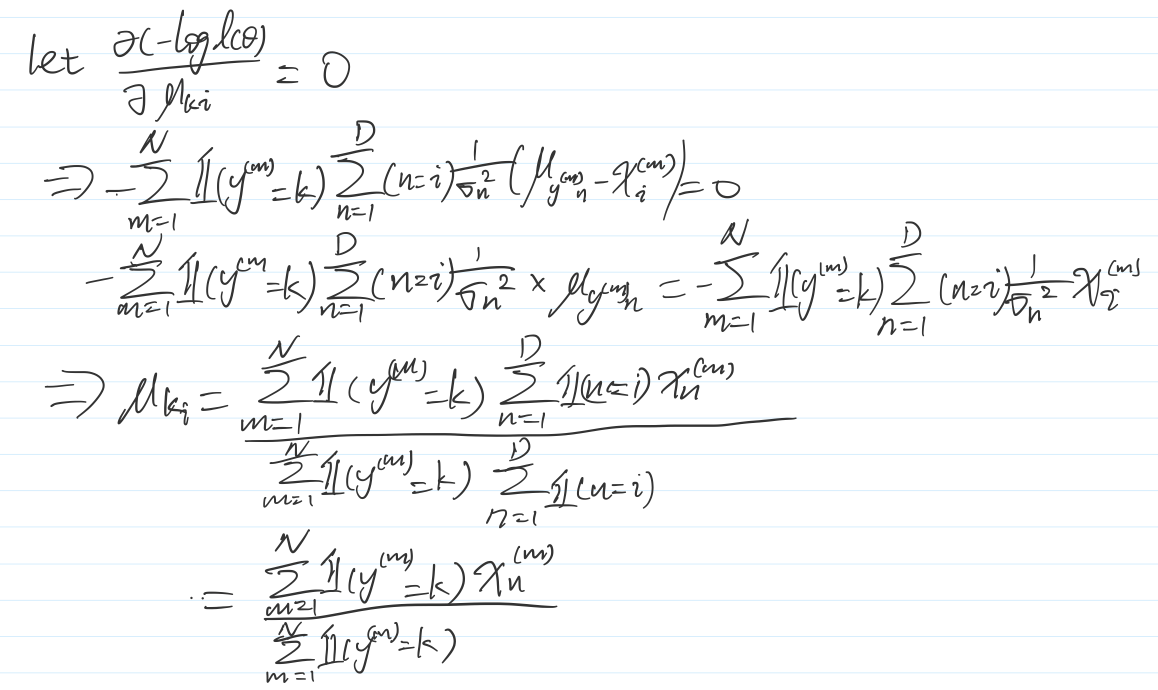 let ∂(-log l(θ) / ∂ μ_{ki} = 0
⇒ -∑_{m=1}^{N} 𝟙(y^{(m)}=k) ∑_{n=1}^{D} (n=i) 1/σ_n^2 (μ_{y^{(m)}n} - x_i^{(m)}) = 0
-∑_{m=1}^{N} 𝟙(y^{(m}=k) ∑_{n=1}^{D} (n=i) 1/σ_n^2 × μ_{y^{(m)}n} = -∑_{m=1}^{N} 𝟙(y^{(m)}=k) ∑_{n=1}^{D} (n=i) 1/σ_n^2 x_i^{(m)}
⇒ μ_{ki} = ∑_{m=1}^{N} 𝟙(y^{(m)}=k) ∑_{n=1}^{D} 𝟙(n=i) x_n^{(m)} / ∑_{m=1}^{N} 𝟙(y^{(m)}=k) ∑_{n=1}^{D} 𝟙(n=i)
= ∑_{m=1}^{N} 𝟙(y^{(m)}=k) x_n^{(m)} / ∑_{m=1}^{N} 𝟙(y^{(m)}=k)